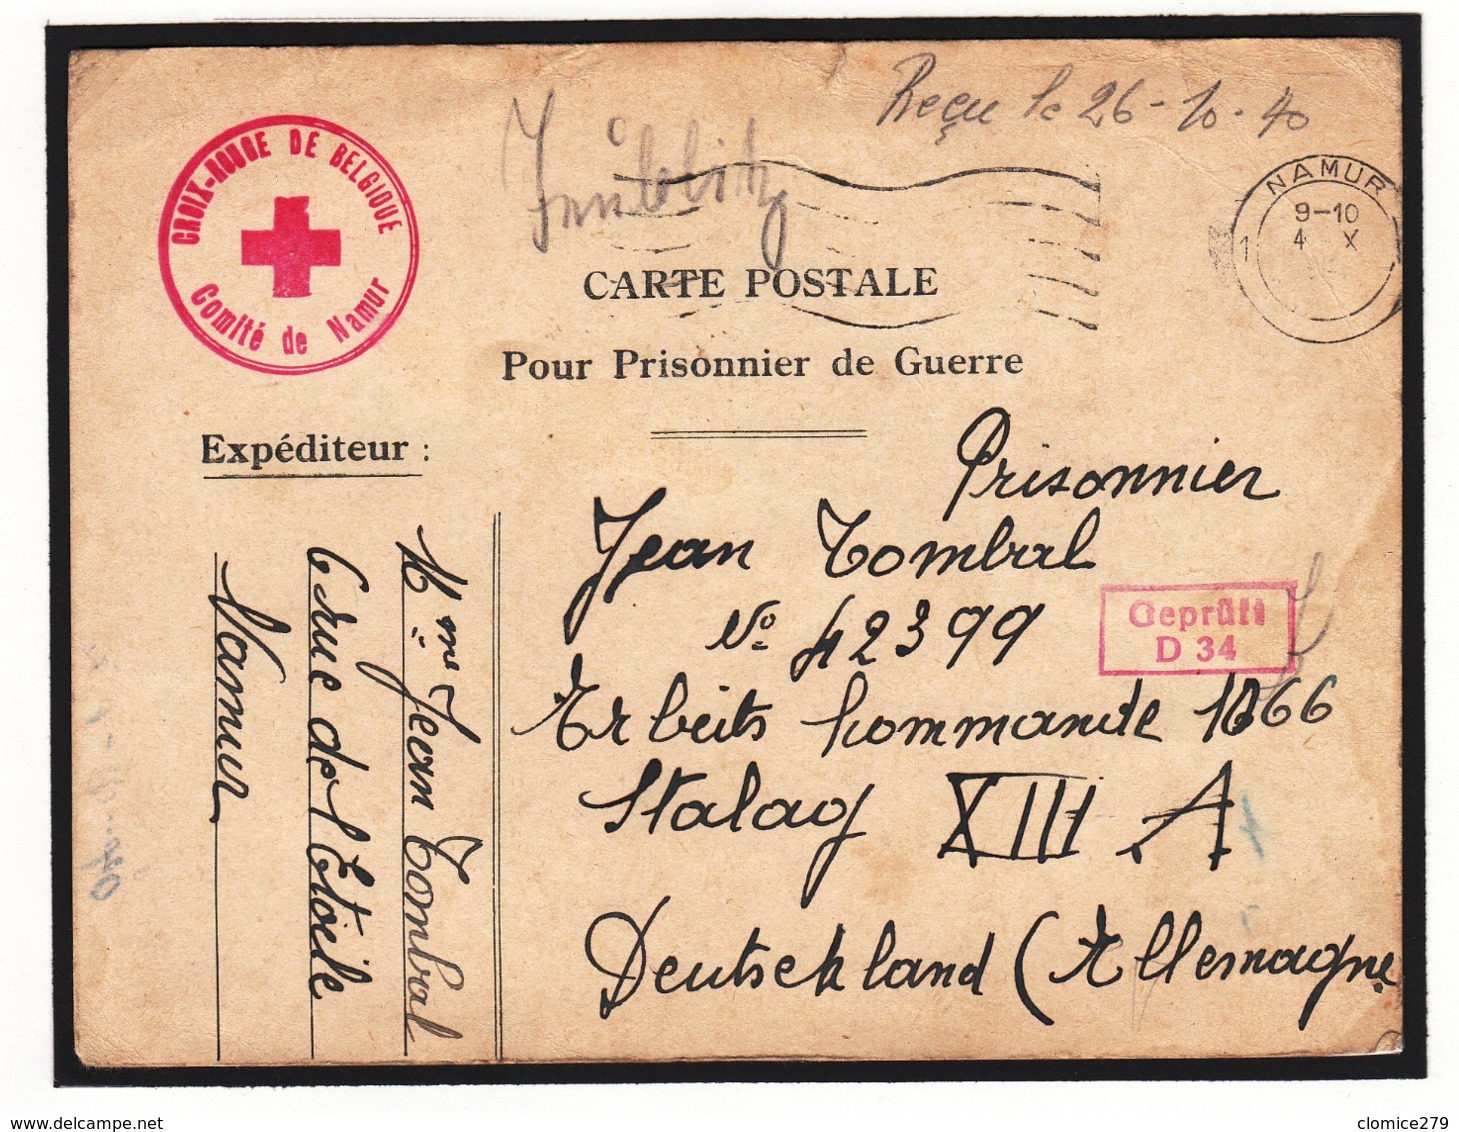 Reçu le 26-10-40
CROIX-ROUGE DE BELGIQUE
Comité de Namur
NAMUR
1
9-10
4 X
CARTE POSTALE
Pour Prisonnier de Guerre
Expéditeur :
Mme Jean Tombal
6 rue de l'Etoile
Namur
Prisonnier
Jean Tombal
No 42399
Geprüft
D 34
Arbeits Kommande 1066
Stalag XIII A
Deutschland (Allemagne
delcampe.net
clomice279